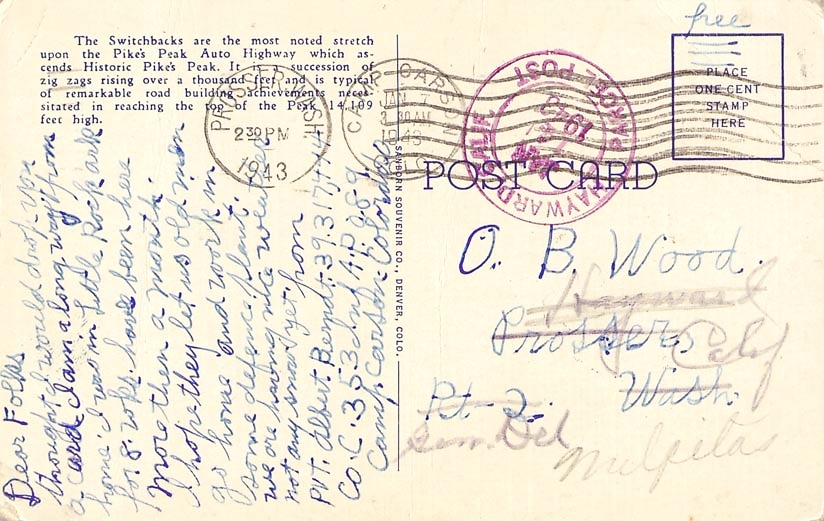 The Switchbacks are the most noted stretch
upon the Pike's Peak Auto Highway which as-
cends Historic Pike's Peak. It is a succession of
zig zags rising over a thousand feet and is typical
of remarkable road building achievements neces-
sitated in reaching the top of the Peak 14,109
feet high.
Dear Folks
thought I would drop you
a card. I am a long way from
home. I was in Little Rock ark
for 8. wks. have been here
more then a month.
I hope they let us old men
go home and work in
some defence plant.
we are having nice weather
not any snow yet. from
PVT. Albert Berndt. 39317
Co. C. 353d inf A.P.O. 89
Camp Carson. Colorado
SANBORN SOUVENIR CO., DENVER, COLO.
PROSSER WASH.
2 30 PM
1943
CARSON
JAN 7
1943
COLO
HAYWARD CALIF.
PARCEL POST
1943
free
PLACE
ONE CENT
STAMP
HERE
POST CARD
O. B. Wood.
Hayward
Prosser
Calif
Rt. 2. Wash.
Gen. Del
Milpitas